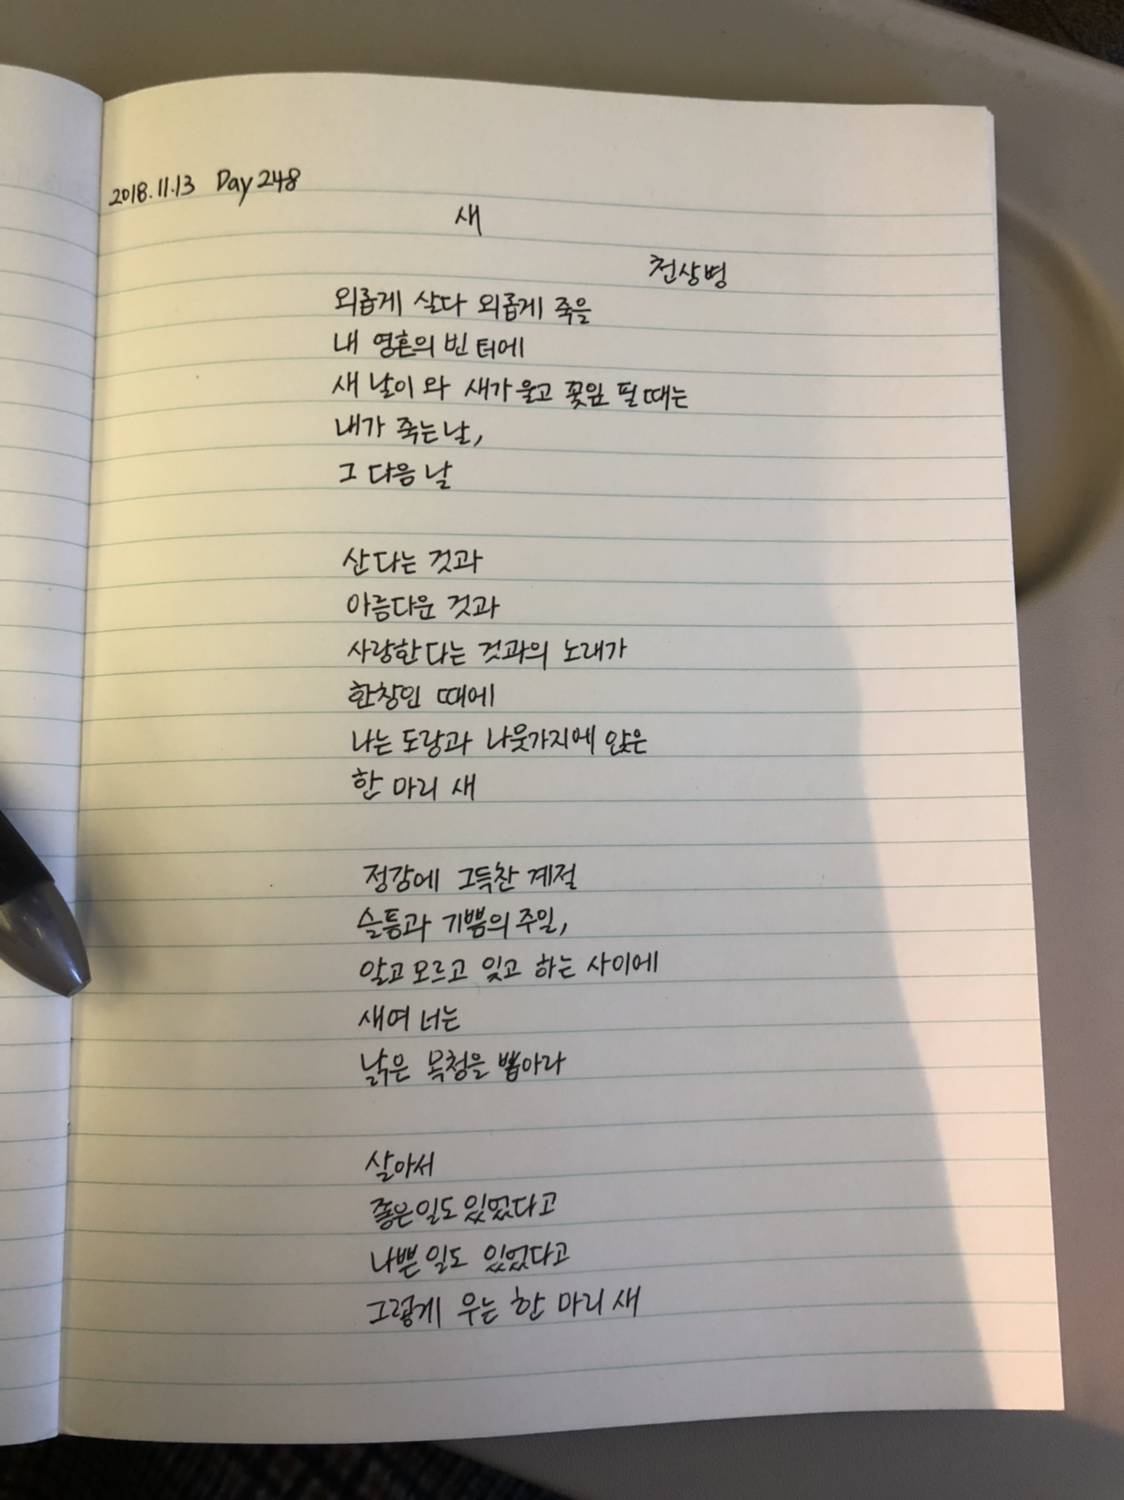 2018.11.13 Day 248
새
천상병
외롭게 살다 외롭게 죽을
내 영혼의 빈 터에
새 날이 와 새가 울고 꽃잎 필 때는
내가 죽는 날,
그 다음 날
산다는 것과
아름다운 것과
사랑한다는 것과의 노래가
한창인 때에
나는 도랑과 나뭇가지에 앉은
한 마리 새
정감에 그득찬 계절
슬픔과 기쁨의 주일,
알고 모르고 잊고 하는 사이에
새여 너는
낡은 목청을 뽑아라
살아서
좋은 일도 있었다고
나쁜 일도 있었다고
그렇게 우는 한 마리 새